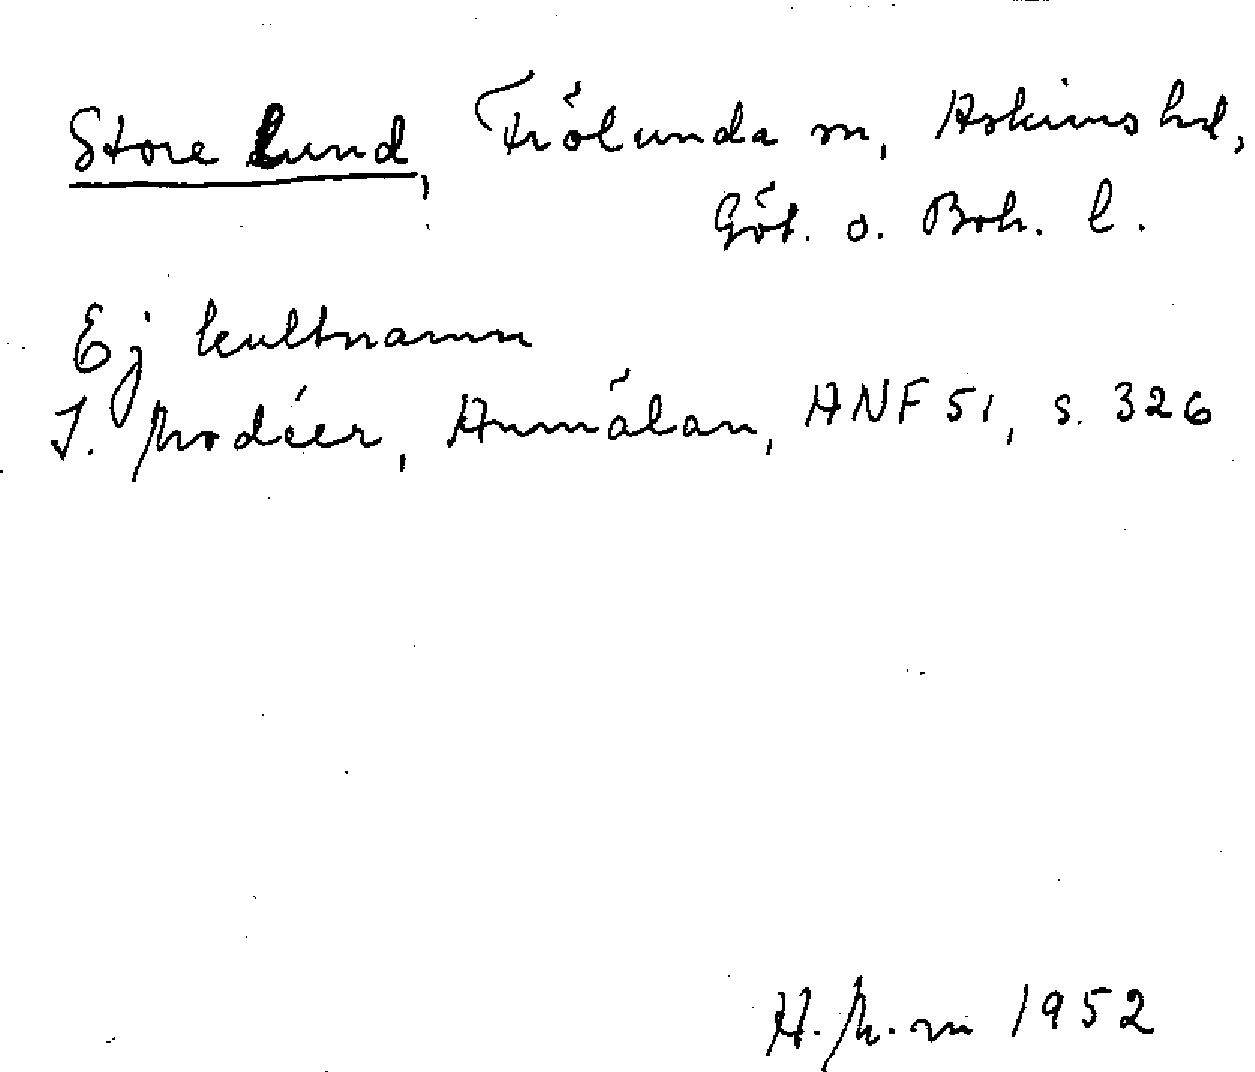 Store Lund, Frölunda sn, Askims hd,
Göt. o. Boh. l.
Ej kultnamn
I. Modéer, Anmälan, ANF 51, s. 326
H. M-m 1952